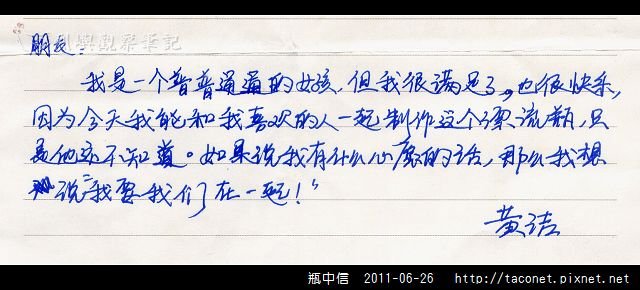 朋友：
我是一个普普通通的女孩，但我很满足了，也很快乐，
因为今天我能和我喜欢的人一起制作这个漂流瓶，只
是他还不知道。如果说我有什么心愿的话，那么我想
说“我要我们在一起！”
黄洁
瓶中信 2011-06-26 http://taconet.pixnet.net